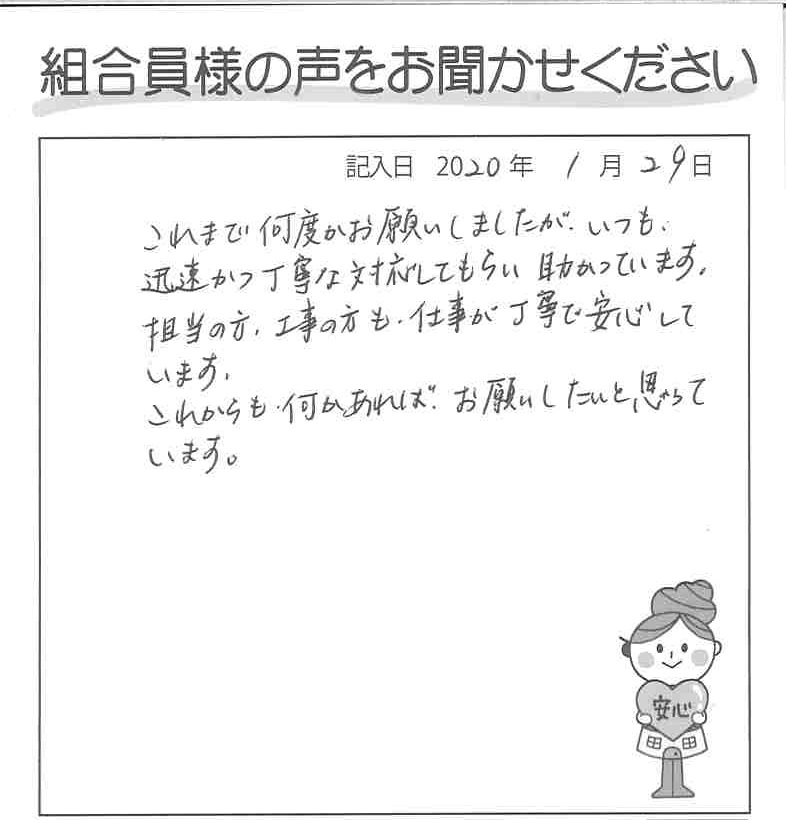 組合員様の声をお聞かせください
記入日 2020年 1月29日
これまで何度かお願いしましたが、いつも、
迅速かつ丁寧な対応してもらい助かっています。
担当の方、工事の方も、仕事が丁寧で安心して
います。
これからも、何かあれば、お願いしたいと思って
います。
安心